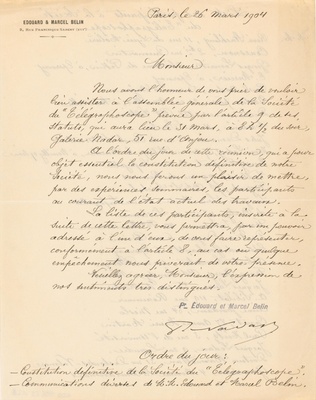 EDOUARD & MARCEL BELIN
Paris, le 26 Mars 1904
Monsieur
Nous avons l'honneur de vous prier de vouloir
bien assister à l'assemblée générale de la Société
du "Télégraphoscope" prévue par l'article 9 de ses
Statuts, qui aura lieu le 31 mars, à 8 h ½ du soir
Galerie Nadar, 51 rue d'Anjou.
A l'ordre du jour de cette réunion, qui a pour
objet essentiel la constitution définitive de notre
Société, nous nous ferons un plaisir de mettre,
par des expériences sommaires, les participants
au courant de l'état actuel des travaux.
La liste de ces participants, insérée à la
suite de cette lettre, vous permettra, par un pouvoir
adressé à l'un d'eux, de vous faire représenter,
conformément à l'article, au cas où quelque
empêchement nous priverait de votre présence.
Veuillez agréer, Monsieur, l'expression de
nos sentiments très distingués.
Pr. Edouard et Marcel Belin
Nadar
Ordre du jour :
— Constitution définitive de la Société du "Télégraphoscope".
— Communications diverses de M.M. Edouard et Marcel Belin.